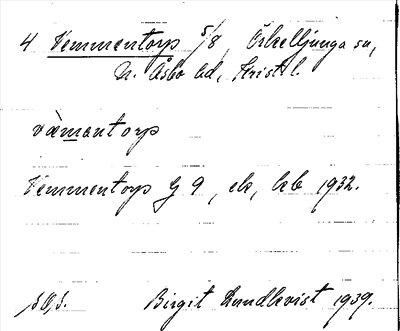 4 Vemmentorp 5/8, Örkelljunga sn,
N. Åsbo hd, Krist l.
væmantorp
Vemmentorp G 9, ek, kb 1932.
Birgit Lundkvist 1939.